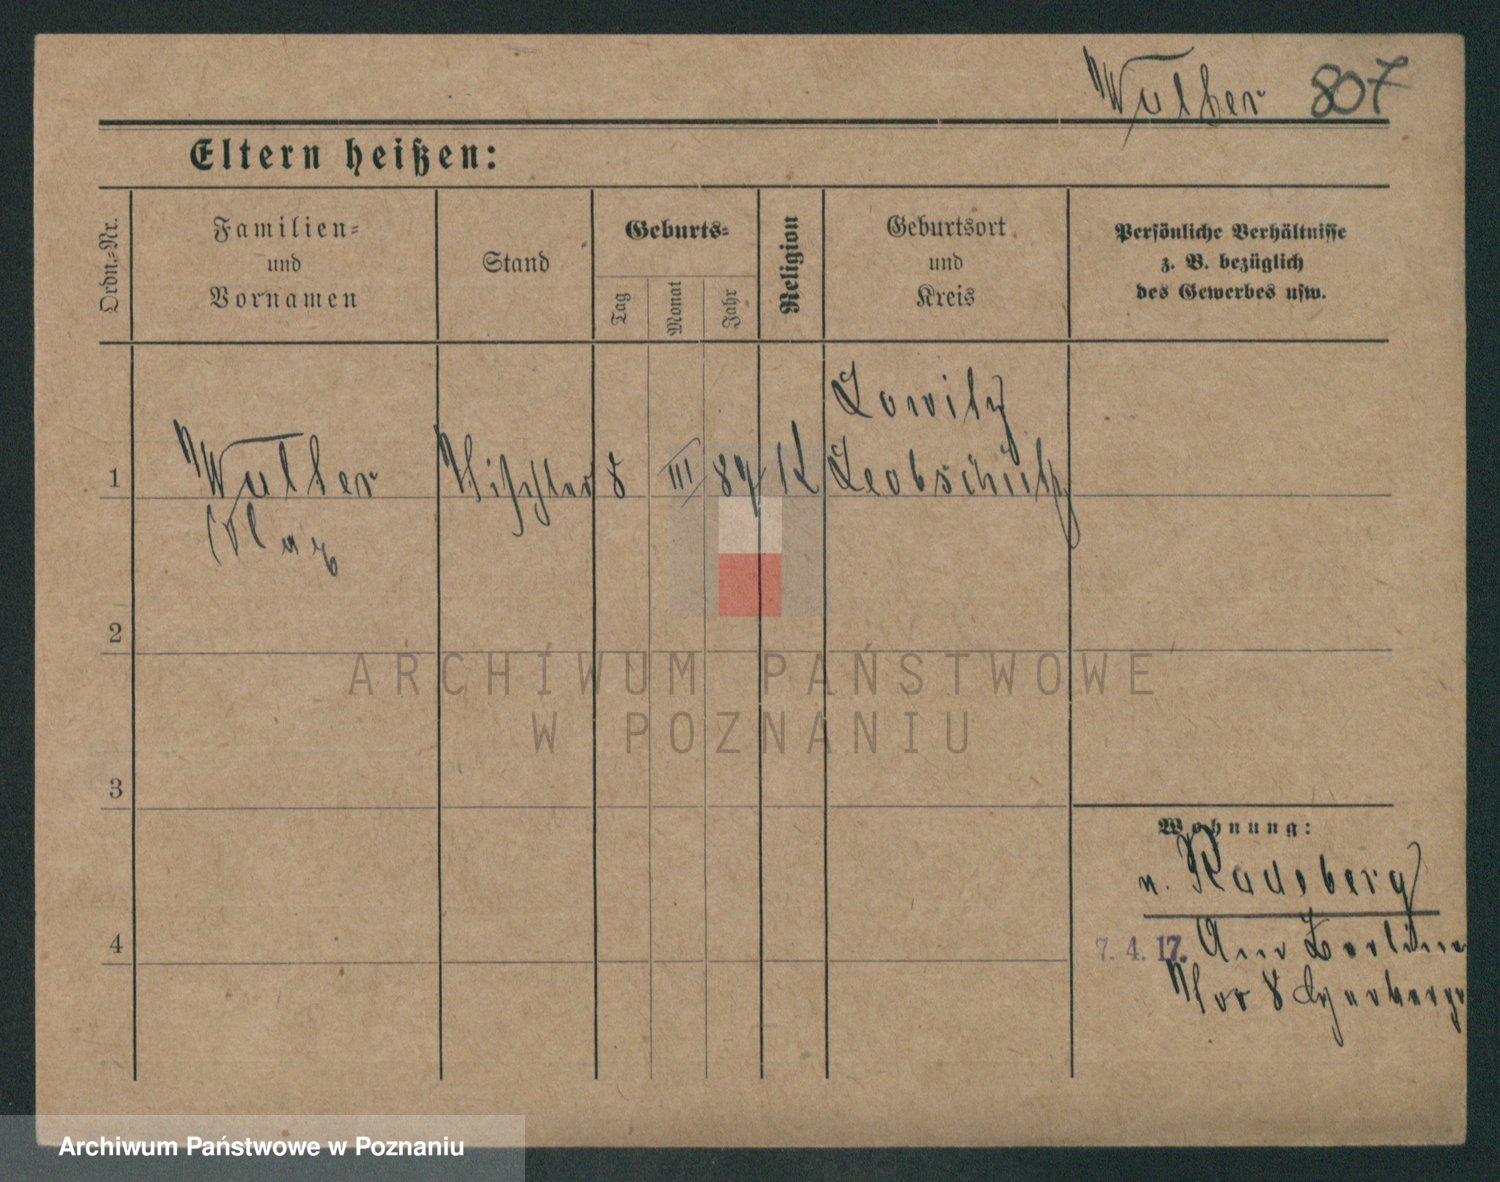 Walther 807
Eltern heißen:
Ordn.-Nr.
Familien-
und
Vornamen
Stand
Geburts-
Tag
Monat
Jahr
Religion
Geburtsort
und
Kreis
Persönliche Verhältnisse
z. B. bezüglich
des Gewerbes usw.
Lowitz
1 Tischler 8 III 89 K Leobschütz
Max
2
3
4
Wohnung:
n. Radeberg
7. 4. 17. Am Berliner
Tor 8
ARCHIWUM PAŃSTWOWE
W POZNANIU
Archiwum Państwowe w Poznaniu